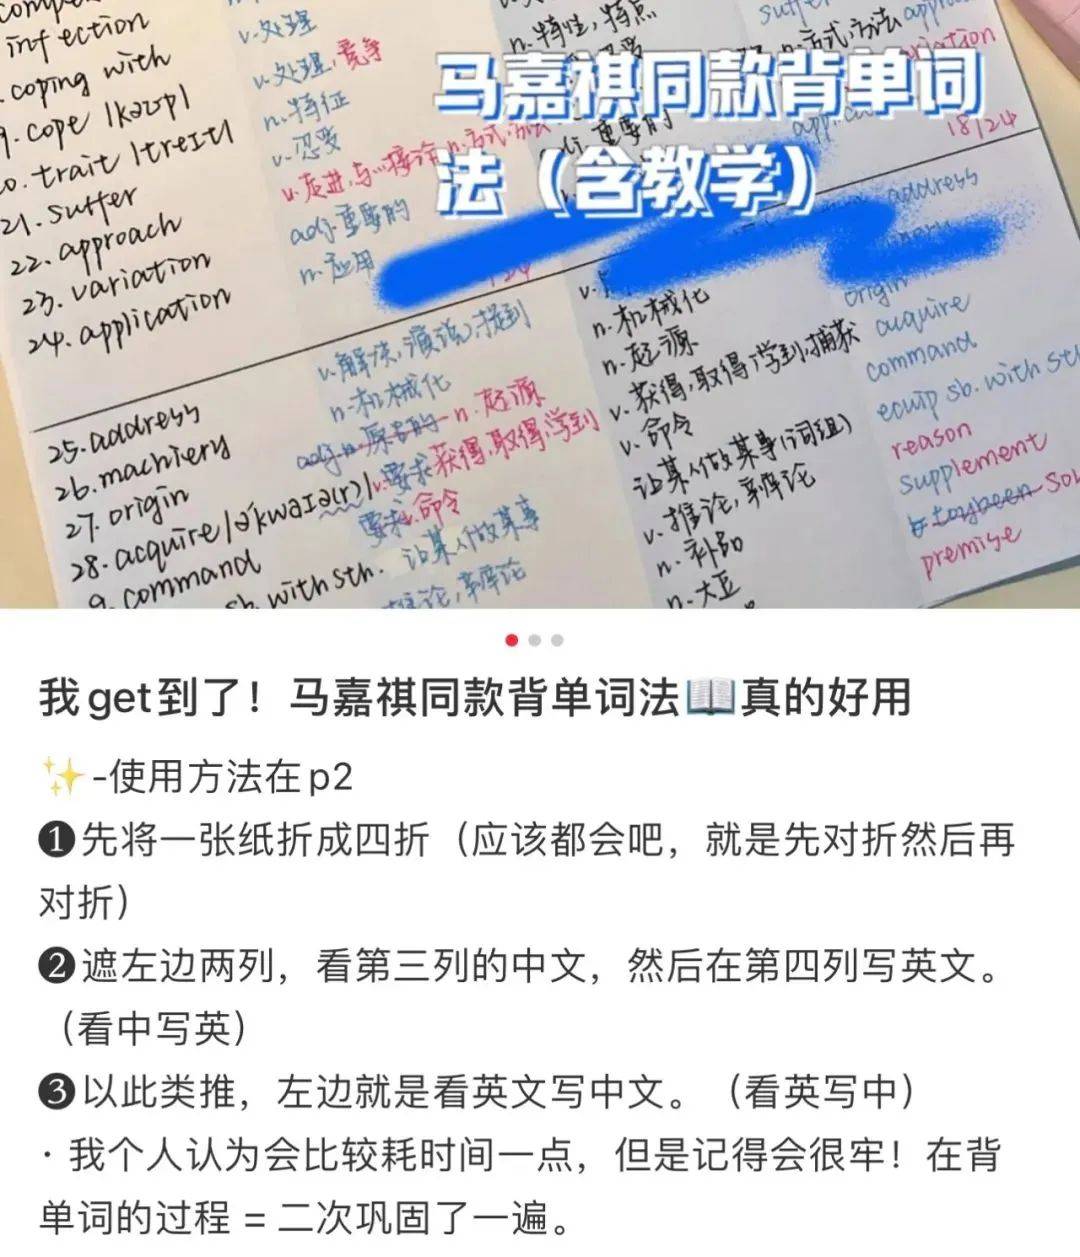 infection
coping with
cope |kəʊp|
trait |treɪt|
21. suffer
22. approach
23. variation
24. application
v.处理
v.处理,竞争
n.特征
v.忍受
v.走进,与…接洽 n.方式,方法
adj.重要的
n.应用
n.特性,特点
马嘉祺同款背单词
法（含教学）
18/24
address
25. address
26. machiery
27. origin
28. acquire/ə'kwaɪə(r)/
command
sb. with sth.
v.解决,演说,提到
n.机械化
n.起源
v.要求 获得,取得,学到
要求 命令
让某人做某事
推论,辩论
n.机械化
n.起源
v.获得,取得,学到,捕获
v.命令
让某人做某事(词组)
v.推论,辩论
n.补助
n.大豆
origin
acquire
command
equip sb. with sth
reason
supplement
premise
我get到了！马嘉祺同款背单词法📖真的好用
✨-使用方法在p2
❶先将一张纸折成四折（应该都会吧，就是先对折然后再
对折）
❷遮左边两列，看第三列的中文，然后在第四列写英文。
（看中写英）
❸以此类推，左边就是看英文写中文。（看英写中）
· 我个人认为会比较耗时间一点，但是记得会很牢！在背
单词的过程 = 二次巩固了一遍。